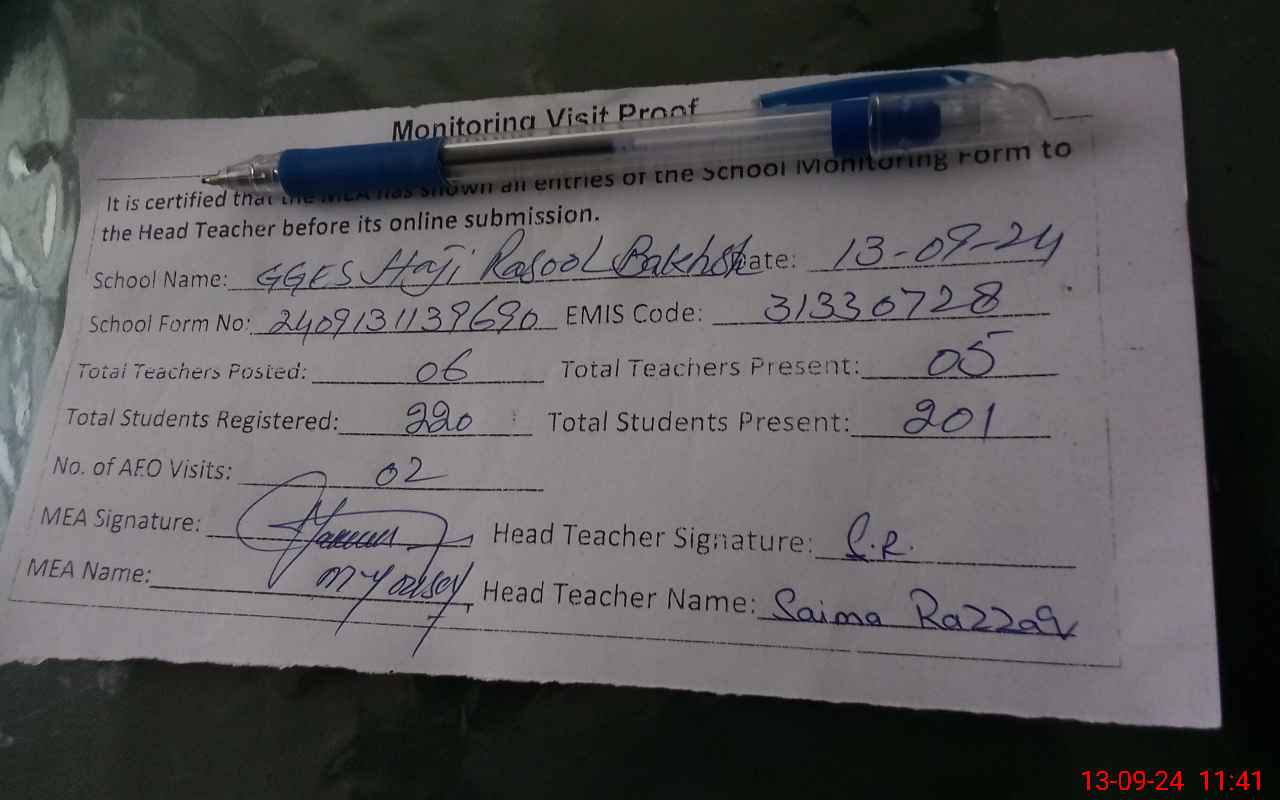 Monitoring Visit Proof
It is certified that the MEA has shown all entries of the School Monitoring Form to
the Head Teacher before its online submission.
School Name: GGES Haji Rasool Bakhsh Date: 13-09-24
School Form No: 2409131139690 EMIS Code: 31330728
Total Teachers Posted: 06 Total Teachers Present: 05
Total Students Registered: 220 Total Students Present: 201
No. of AEO Visits: 02
MEA Signature: Head Teacher Signature: S.R.
MEA Name: M Yousaf Head Teacher Name: Saima Razzaq
13-09-24 11:41